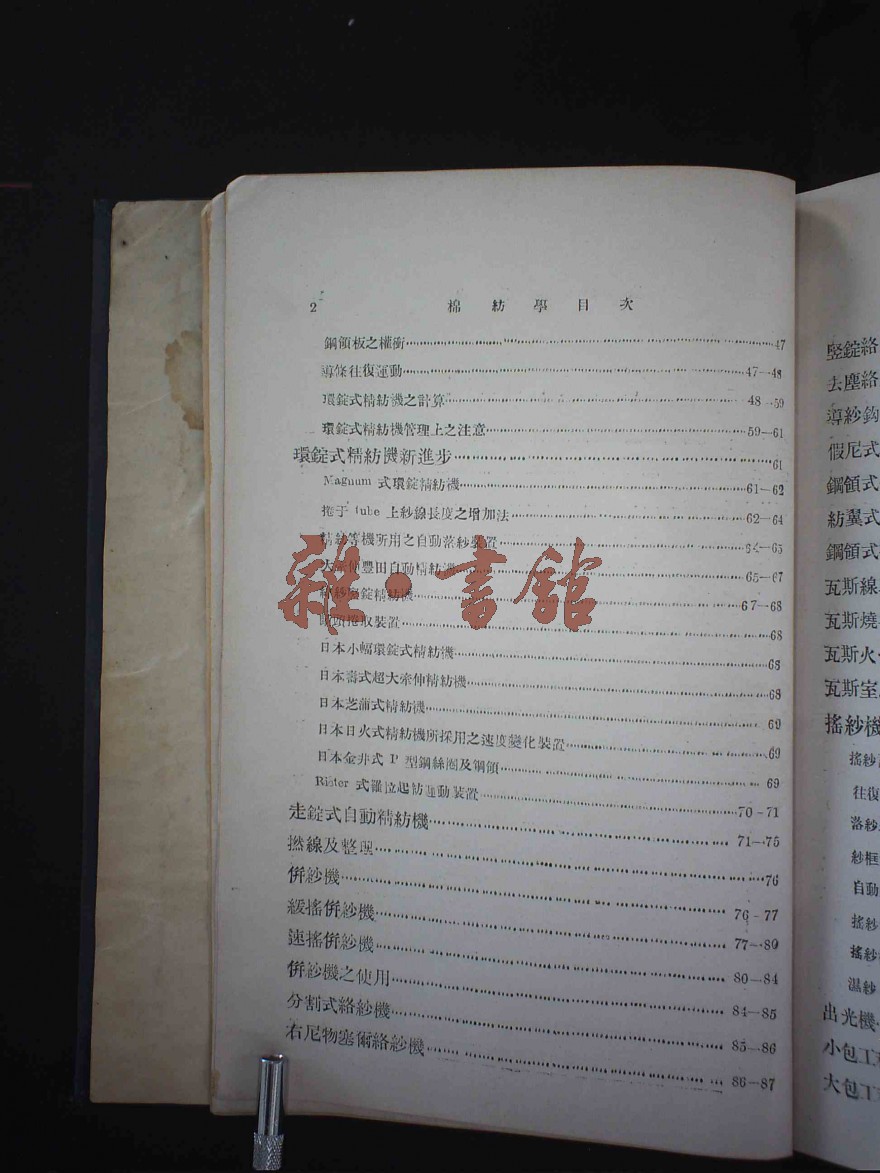 2 棉紡學目次
鋼領板之權衡 47
導條往復運動 47—48
環錠式精紡機之計算 48—59
環錠式精紡機管理上之注意 59—61
環錠式精紡機新進步 61
Magnum 式環錠精紡機 61—62
捲于 tube 上紗線長度之增加法 62—64
精紡等機所用之自動落紗裝置 64—65
大牽伸豐田自動精紡機 65—67
精紡機 67—68
捲取裝置 68
日本小幅環錠式精紡機 68
日本壽式超大牽伸精紡機 68
日本芝蒲式精紡機 69
日本日火式精紡機所採用之速度變化裝置 69
日本金井式 P 型鋼絲圈及鋼領 69
Rister 式羅拉起紡運動裝置 70-71
走錠式自動精紡機 71—75
撚線及整理 76
併紗機 76-77
緩搖併紗機
速搖併紗機 77—80
併紗機之使用 80—84
分割式絡紗機 84—85
右尼物塞爾絡紗機 85—86
86—87
雜·書館
竪錠絡
去塵絡
導紗鈎
假尼式
鋼領式
紡翼式
鋼領式
瓦斯線
瓦斯燒
瓦斯火
瓦斯室
搖紗機
搖紗
往復
落紗
紗框
自動
搖紗
搖紗
濕紗
出光機
小包工
大包工